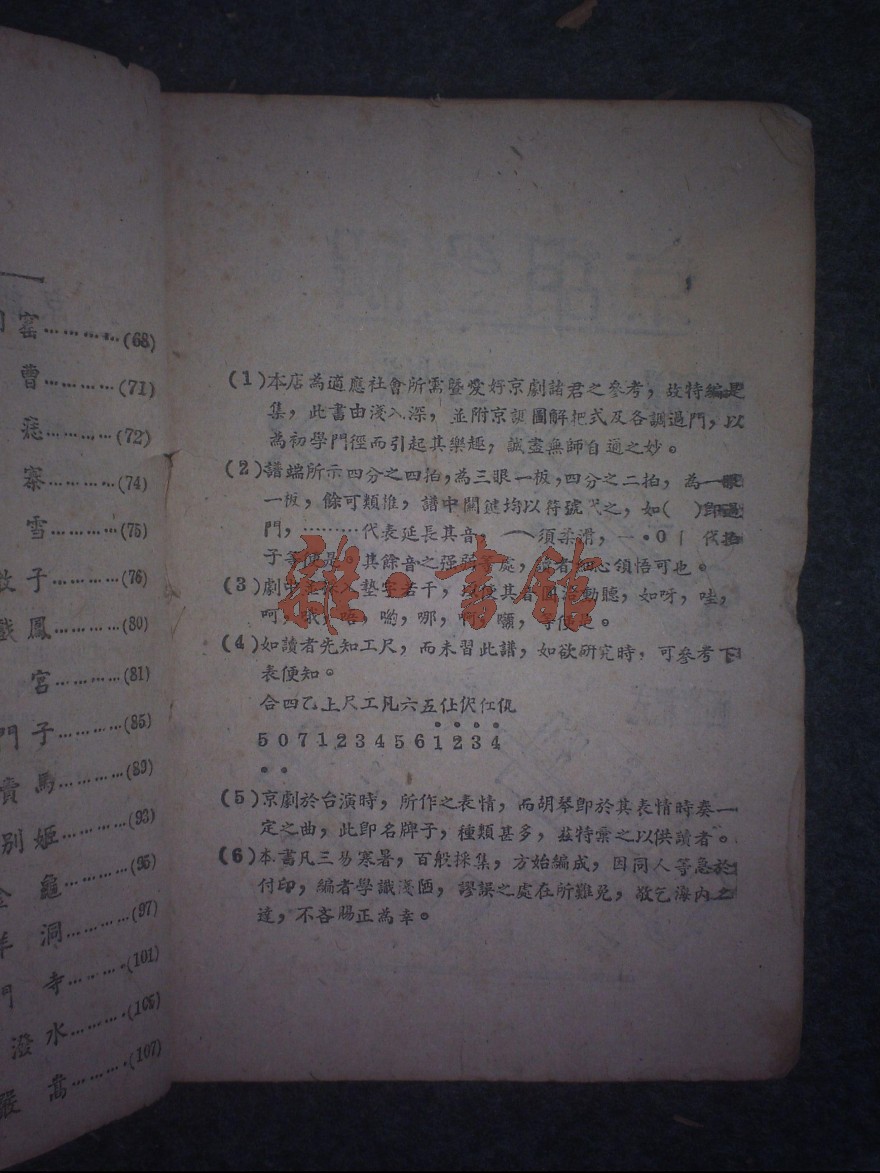 一
窰…………(68)
曹…………(71)
痣…………(72)
寨…………(74)
雪…………(75)
子…………(76)
戲鳳…………(80)
宮…………(81)
門子…………(85)
賣馬…………(89)
別姬…………(93)
金龜…………(95)
羊洞…………(97)
門寺…………(101)
潑水…………(105)
嵩…………(107)
(1)本店為適應社會所需暨愛好京劇諸君之參考,故特編是
集,此書由淺入深,並附京調圖解把式及各調過門,以
為初學門徑而引起其樂趣,誠盡無師自通之妙。
(2)譜端所示四分之四拍,為三眼一板,四分之二拍,為一眼
一板,餘可類推,譜中關鍵均以符號代之,如( )即過
門,………代表延長其音,⌒須柔滑,一·0 代拍
子等便是。其餘音之强弱等處,讀者細心領悟可也。
(3)劇中 入墊字若干,以便其音圓滑動聽,如呀,哇,
呵,哦,咯,喲,哪,啊,嚈,等便是。
(4)如讀者先知工尺,而未習此譜,如欲研究時,可參考下
表便知。
合四乙上尺工凡六五仩伬仜𠆩
5 0 7 1 2 3 4 5 6 1 2 3 4
(5)京劇於台演時,所作之表情,而胡琴即於其表情時奏一
定之曲,此即名牌子,種類甚多,茲特彙之以供讀者。
(6)本書凡三易寒暑,百般採集,方始編成,因同人等急於
付印,編者學識淺陋,謬誤之處在所難免,敬乞海內之
達,不吝賜正為幸。
雜·書館